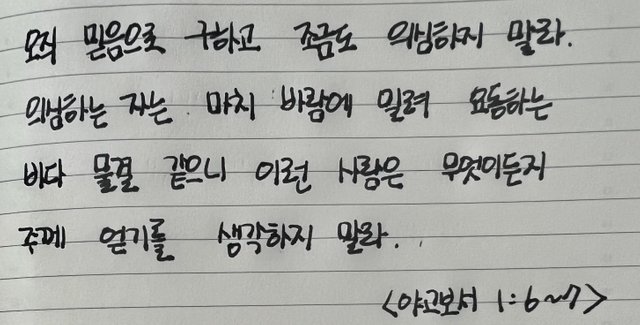 오직 믿음으로 구하고 조금도 의심하지 말라.
의심하는 자는 마치 바람에 밀려 요동하는
바다 물결 같으니 이런 사람은 무엇이든지
주께 얻기를 생각하지 말라.
<야고보서 1:6~7>